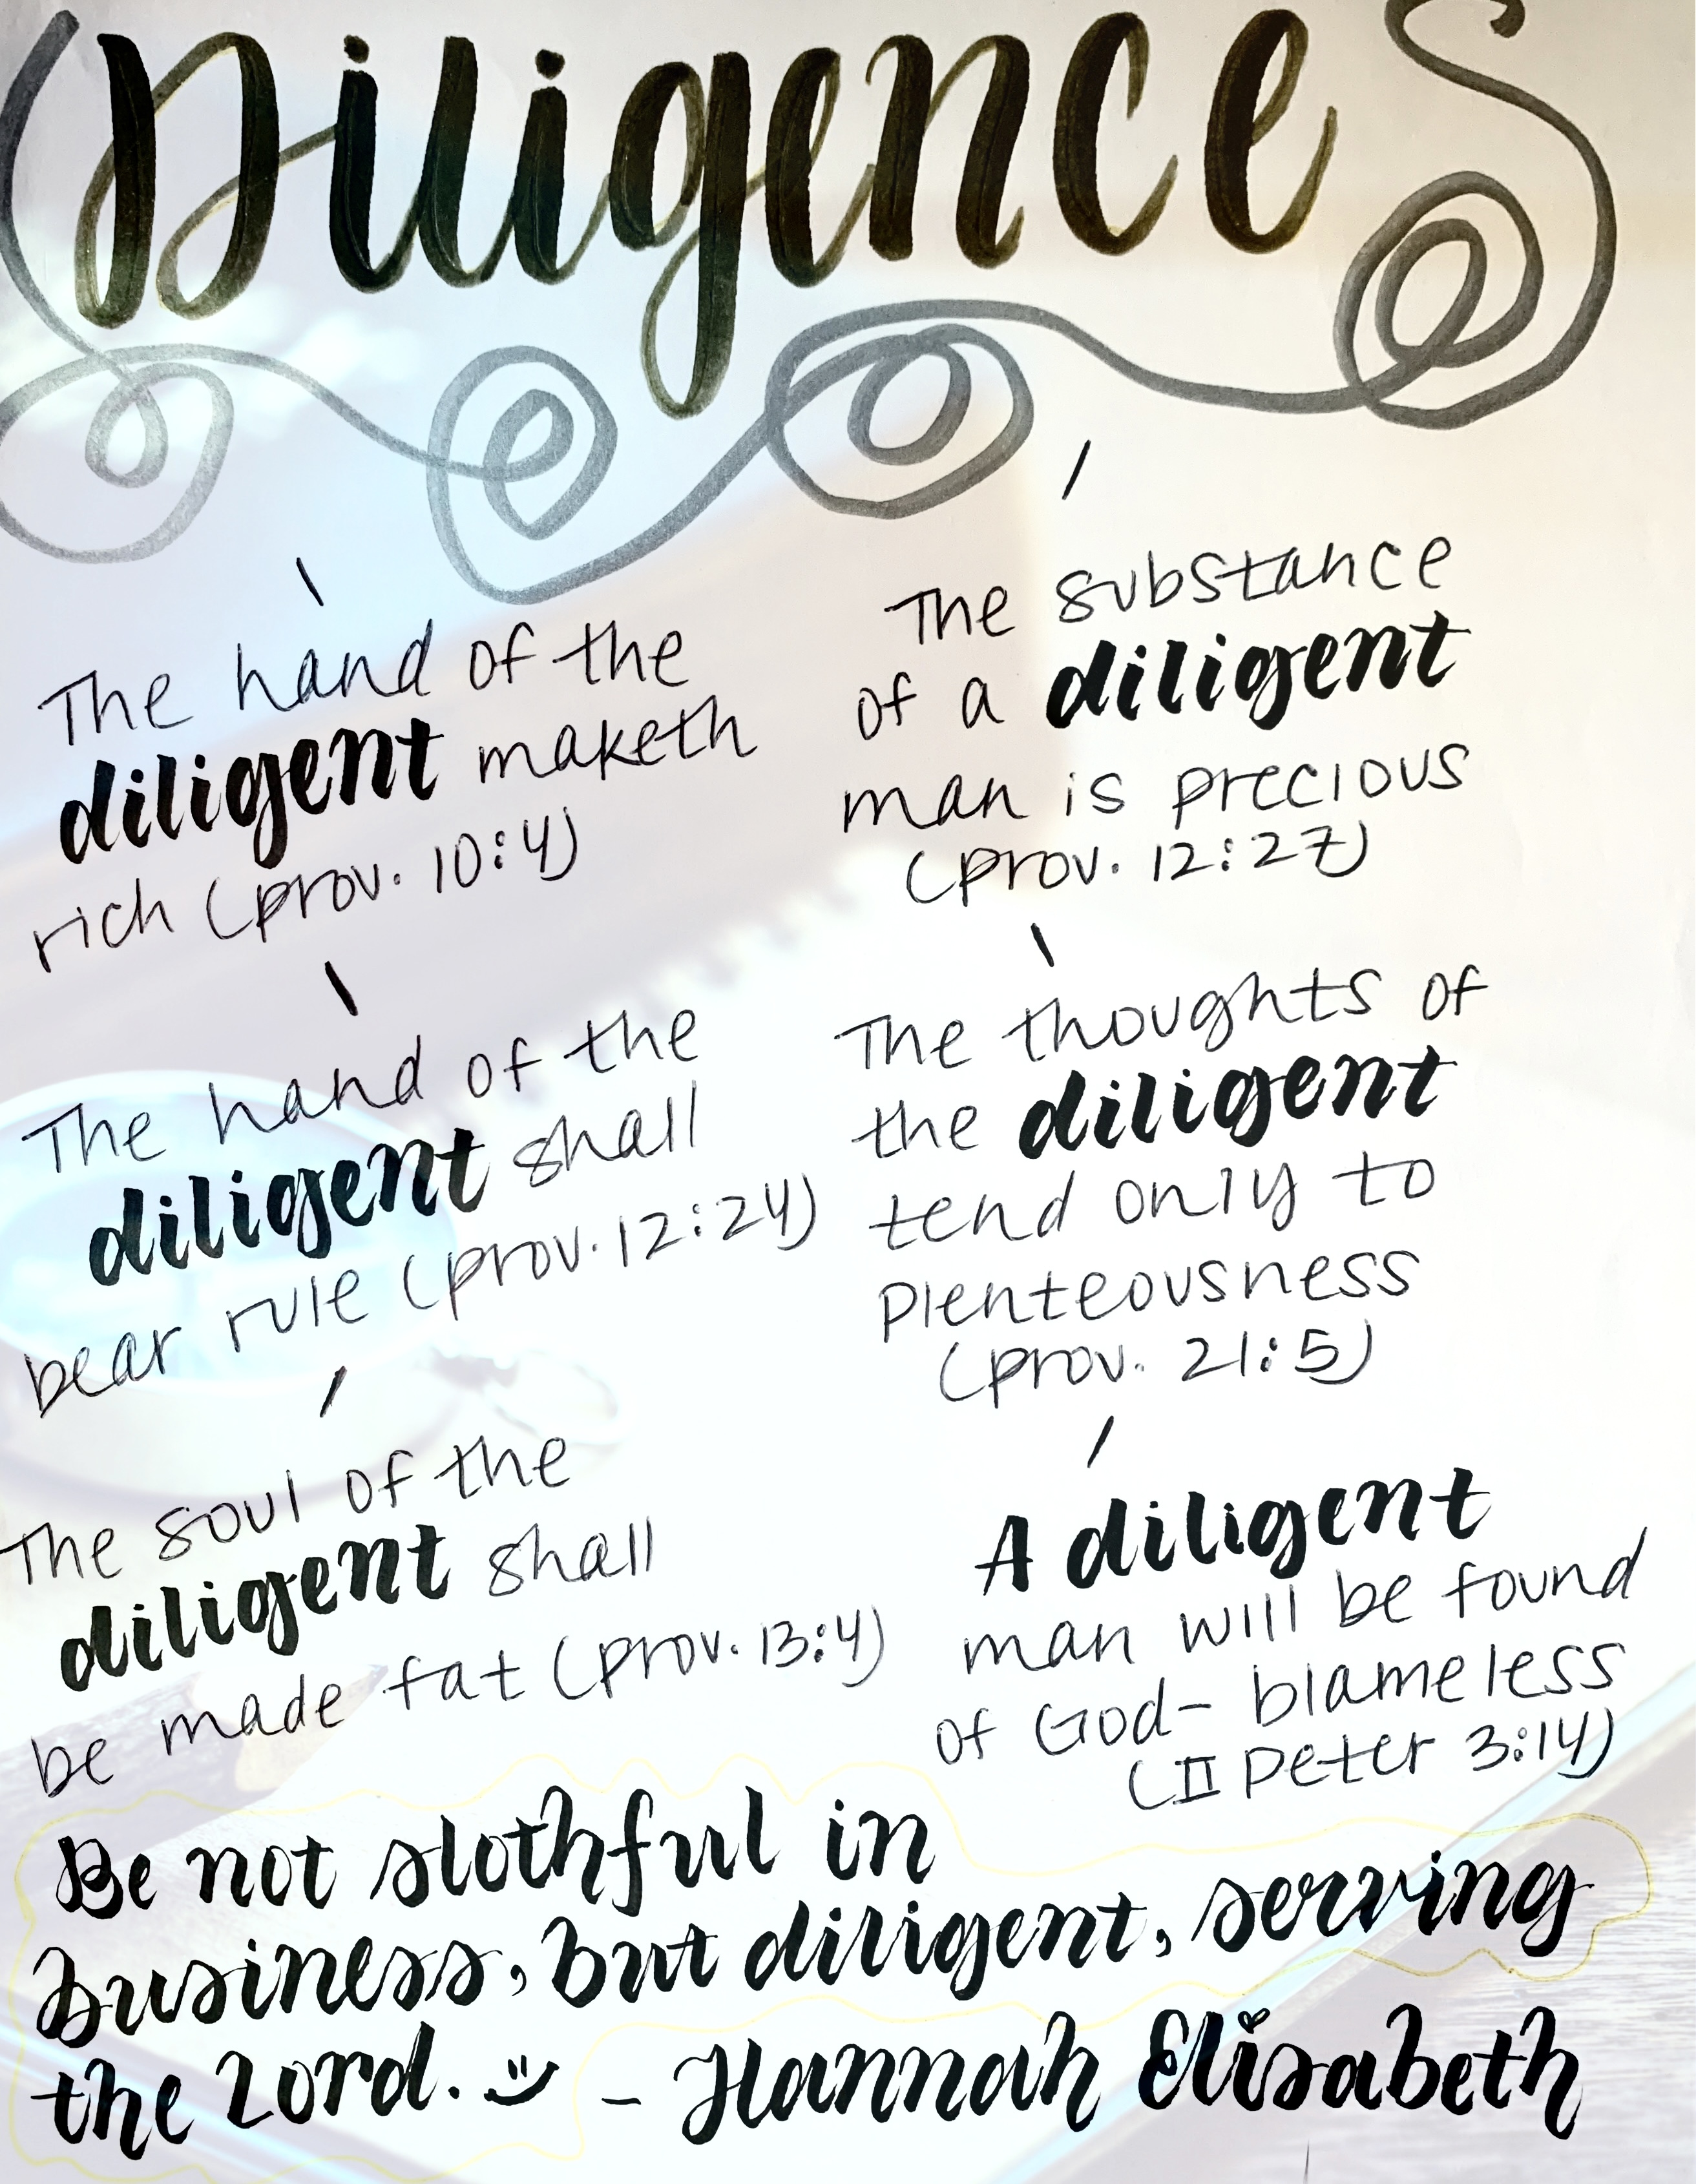 Diligence
The hand of the
diligent maketh
rich (prov. 10:4)
The hand of the
diligent shall
bear rule (prov. 12:24)
The soul of the
diligent shall
be made fat (prov. 13:4)
The substance
of a diligent
man is precious
(prov. 12:27)
The thoughts of
the diligent
tend only to
plenteousness
(prov. 21:5)
A diligent
man will be found
of God- blameless
(II Peter 3:14)
Be not slothful in
business, but diligent, serving
the Lord. - Hannah Elisabeth